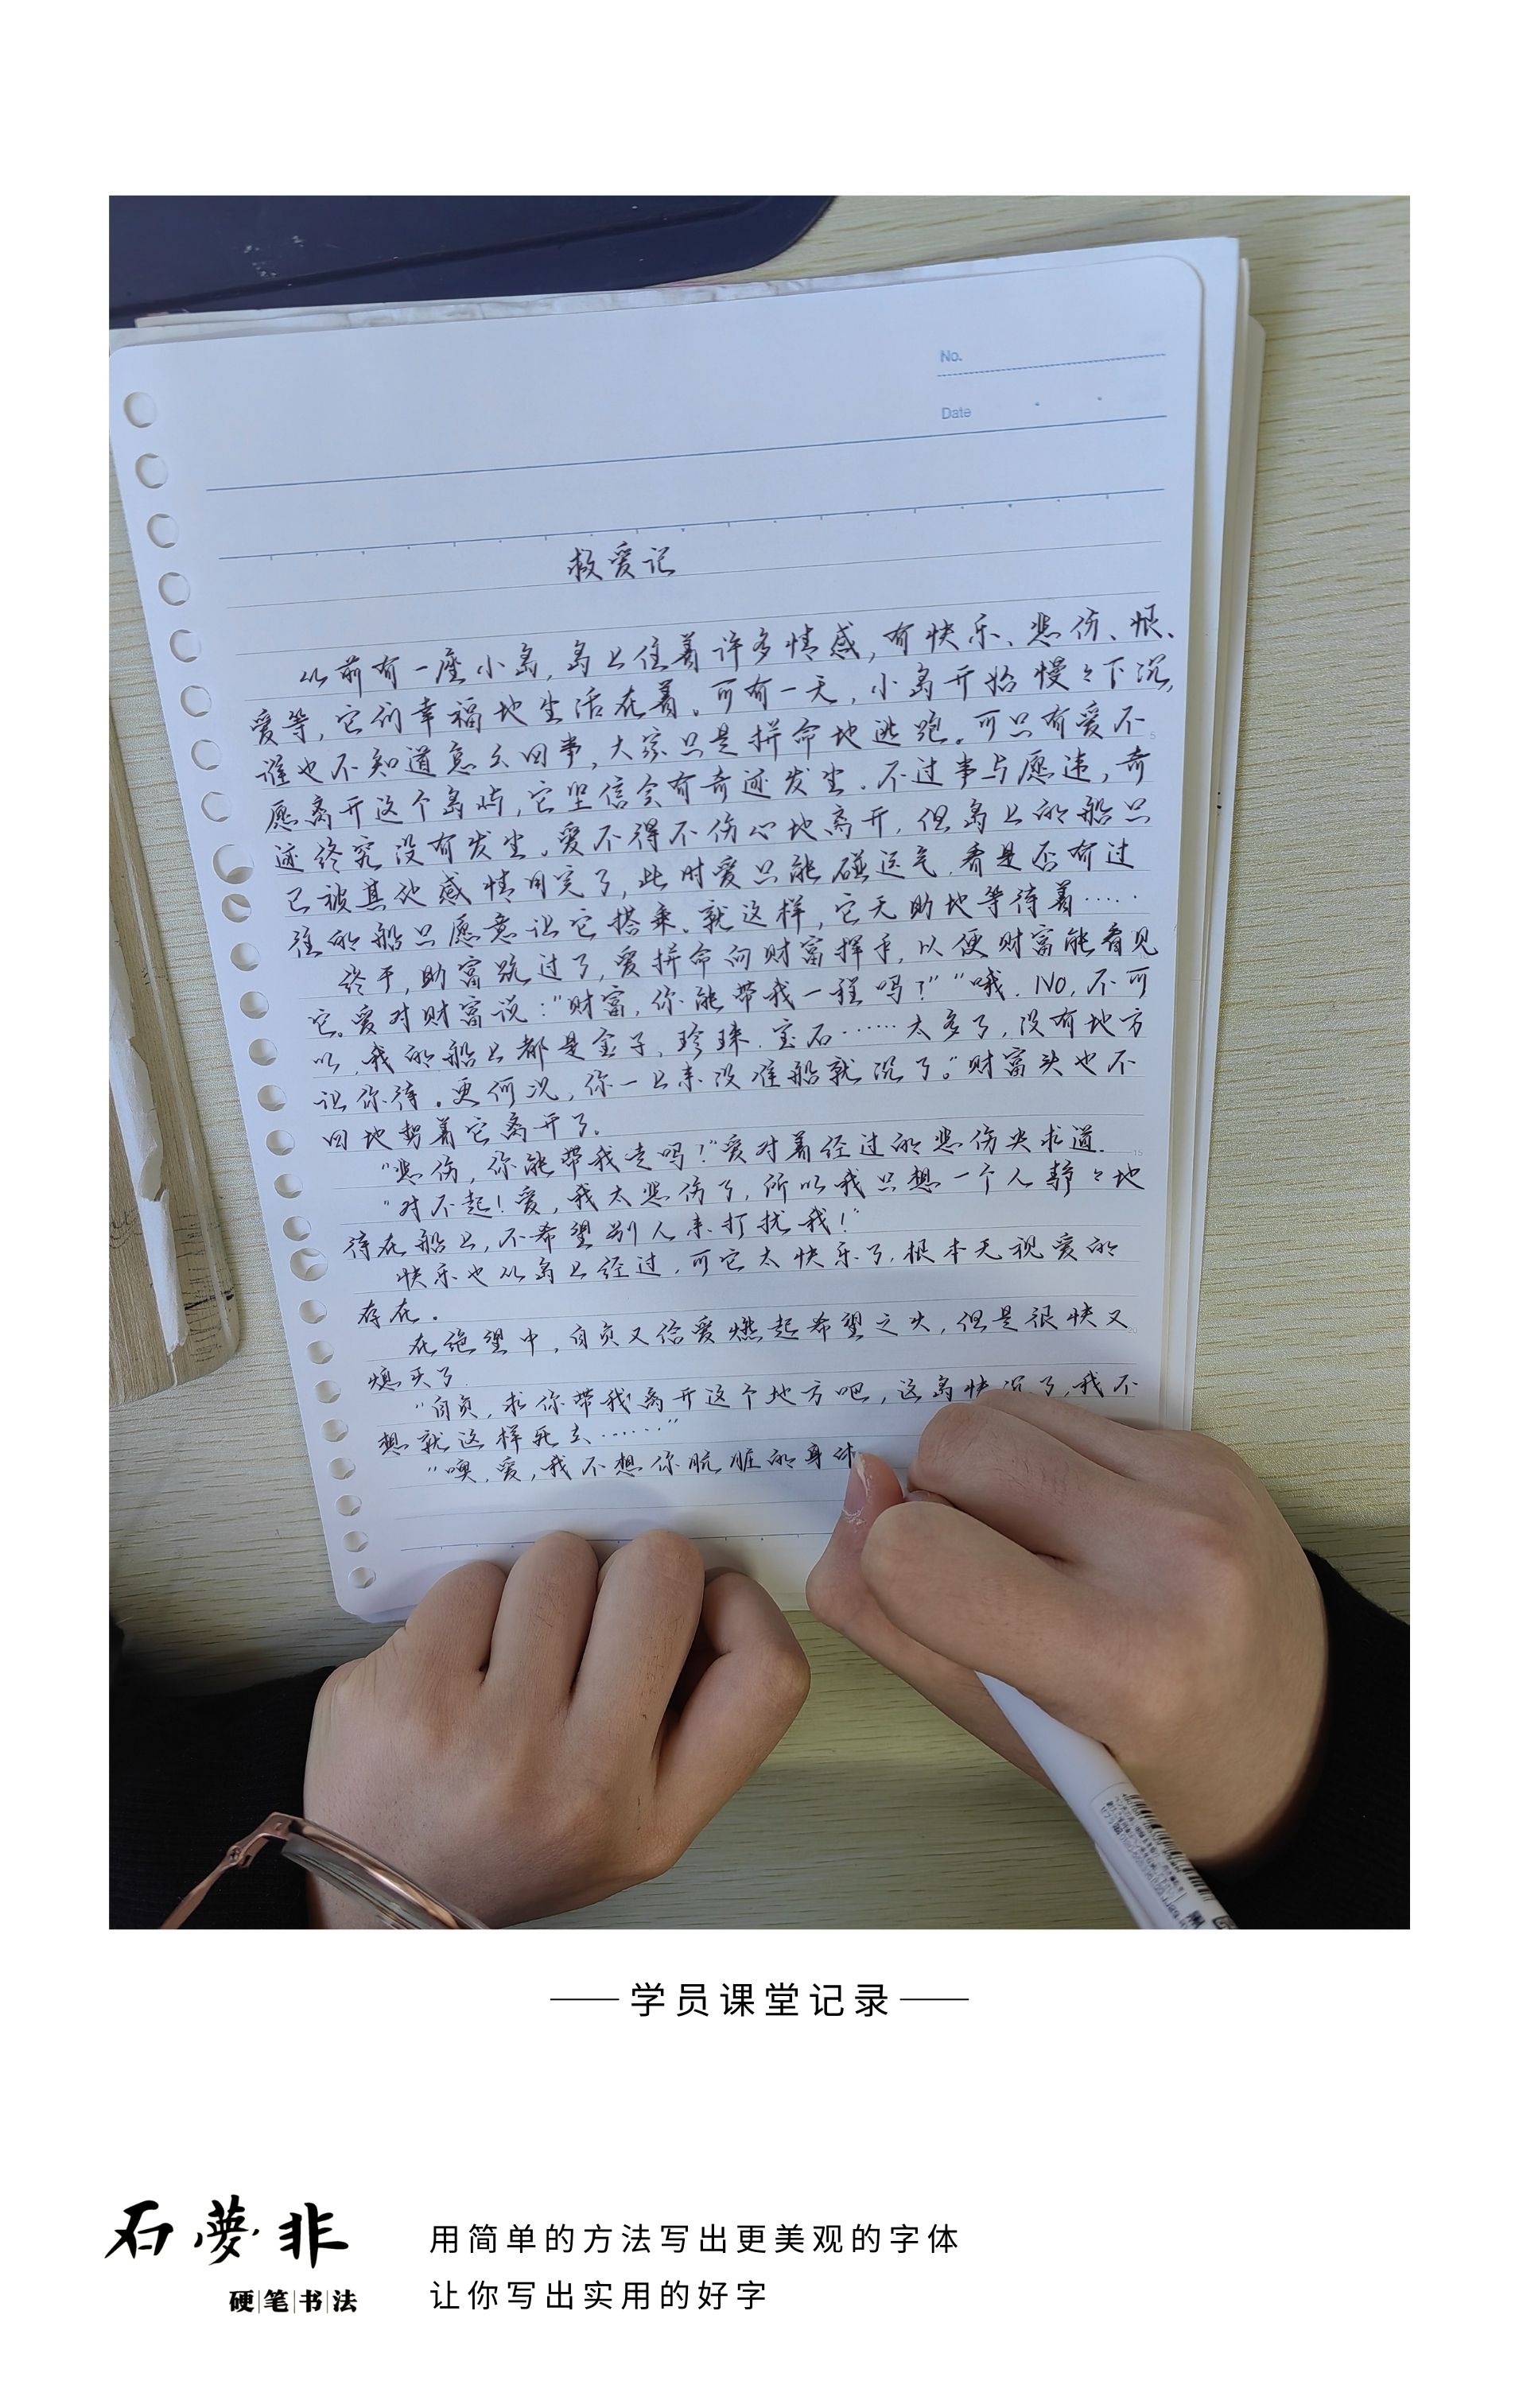 No.
Date
救爱记
从前有一座小岛，岛上住着许多情感，有快乐、悲伤、恨、
爱等，它们幸福地生活在着。可有一天，小岛开始慢々下沉，
谁也不知道怎么回事，大家只是拼命地逃跑。可只有爱不
愿离开这个岛屿，它坚信会有奇迹发生。不过事与愿违，奇
迹终究没有发生。爱不得不伤心地离开，但岛上的船只
已被其他感情用完了，此时爱只能碰运气，看是否有过
往的船只愿意让它搭乘。就这样，它无助地等待着……
终于，助富跪过了，爱拼命向财富挥手，以便财富能看见
它。爱对财富说：“财富，你能带我一程吗？”“哦，NO，不可
以，我的船上都是金子、珍珠、宝石……太多了，没有地方
让你待。更何况，你一上来没准船就沉了。”财富头也不
回地努着它离开了。
“悲伤，你能带我走吗？”爱对着经过的悲伤央求道.
“对不起！爱，我太悲伤了，所以我只想一个人静々地
待在船上，不希望别人来打扰我！”
快乐也从岛上经过，可它太快乐了，根本无视爱的
存在.
在绝望中，自负又给爱燃起希望之火，但是很快又
熄灭了.
“自负，求你带我离开这个地方吧，这岛快沉了，我不
想就这样死去……”
“噢，爱，我不想你肮脏的身体
学员课堂记录
石夢非
硬笔书法
用简单的方法写出更美观的字体
让你写出实用的好字